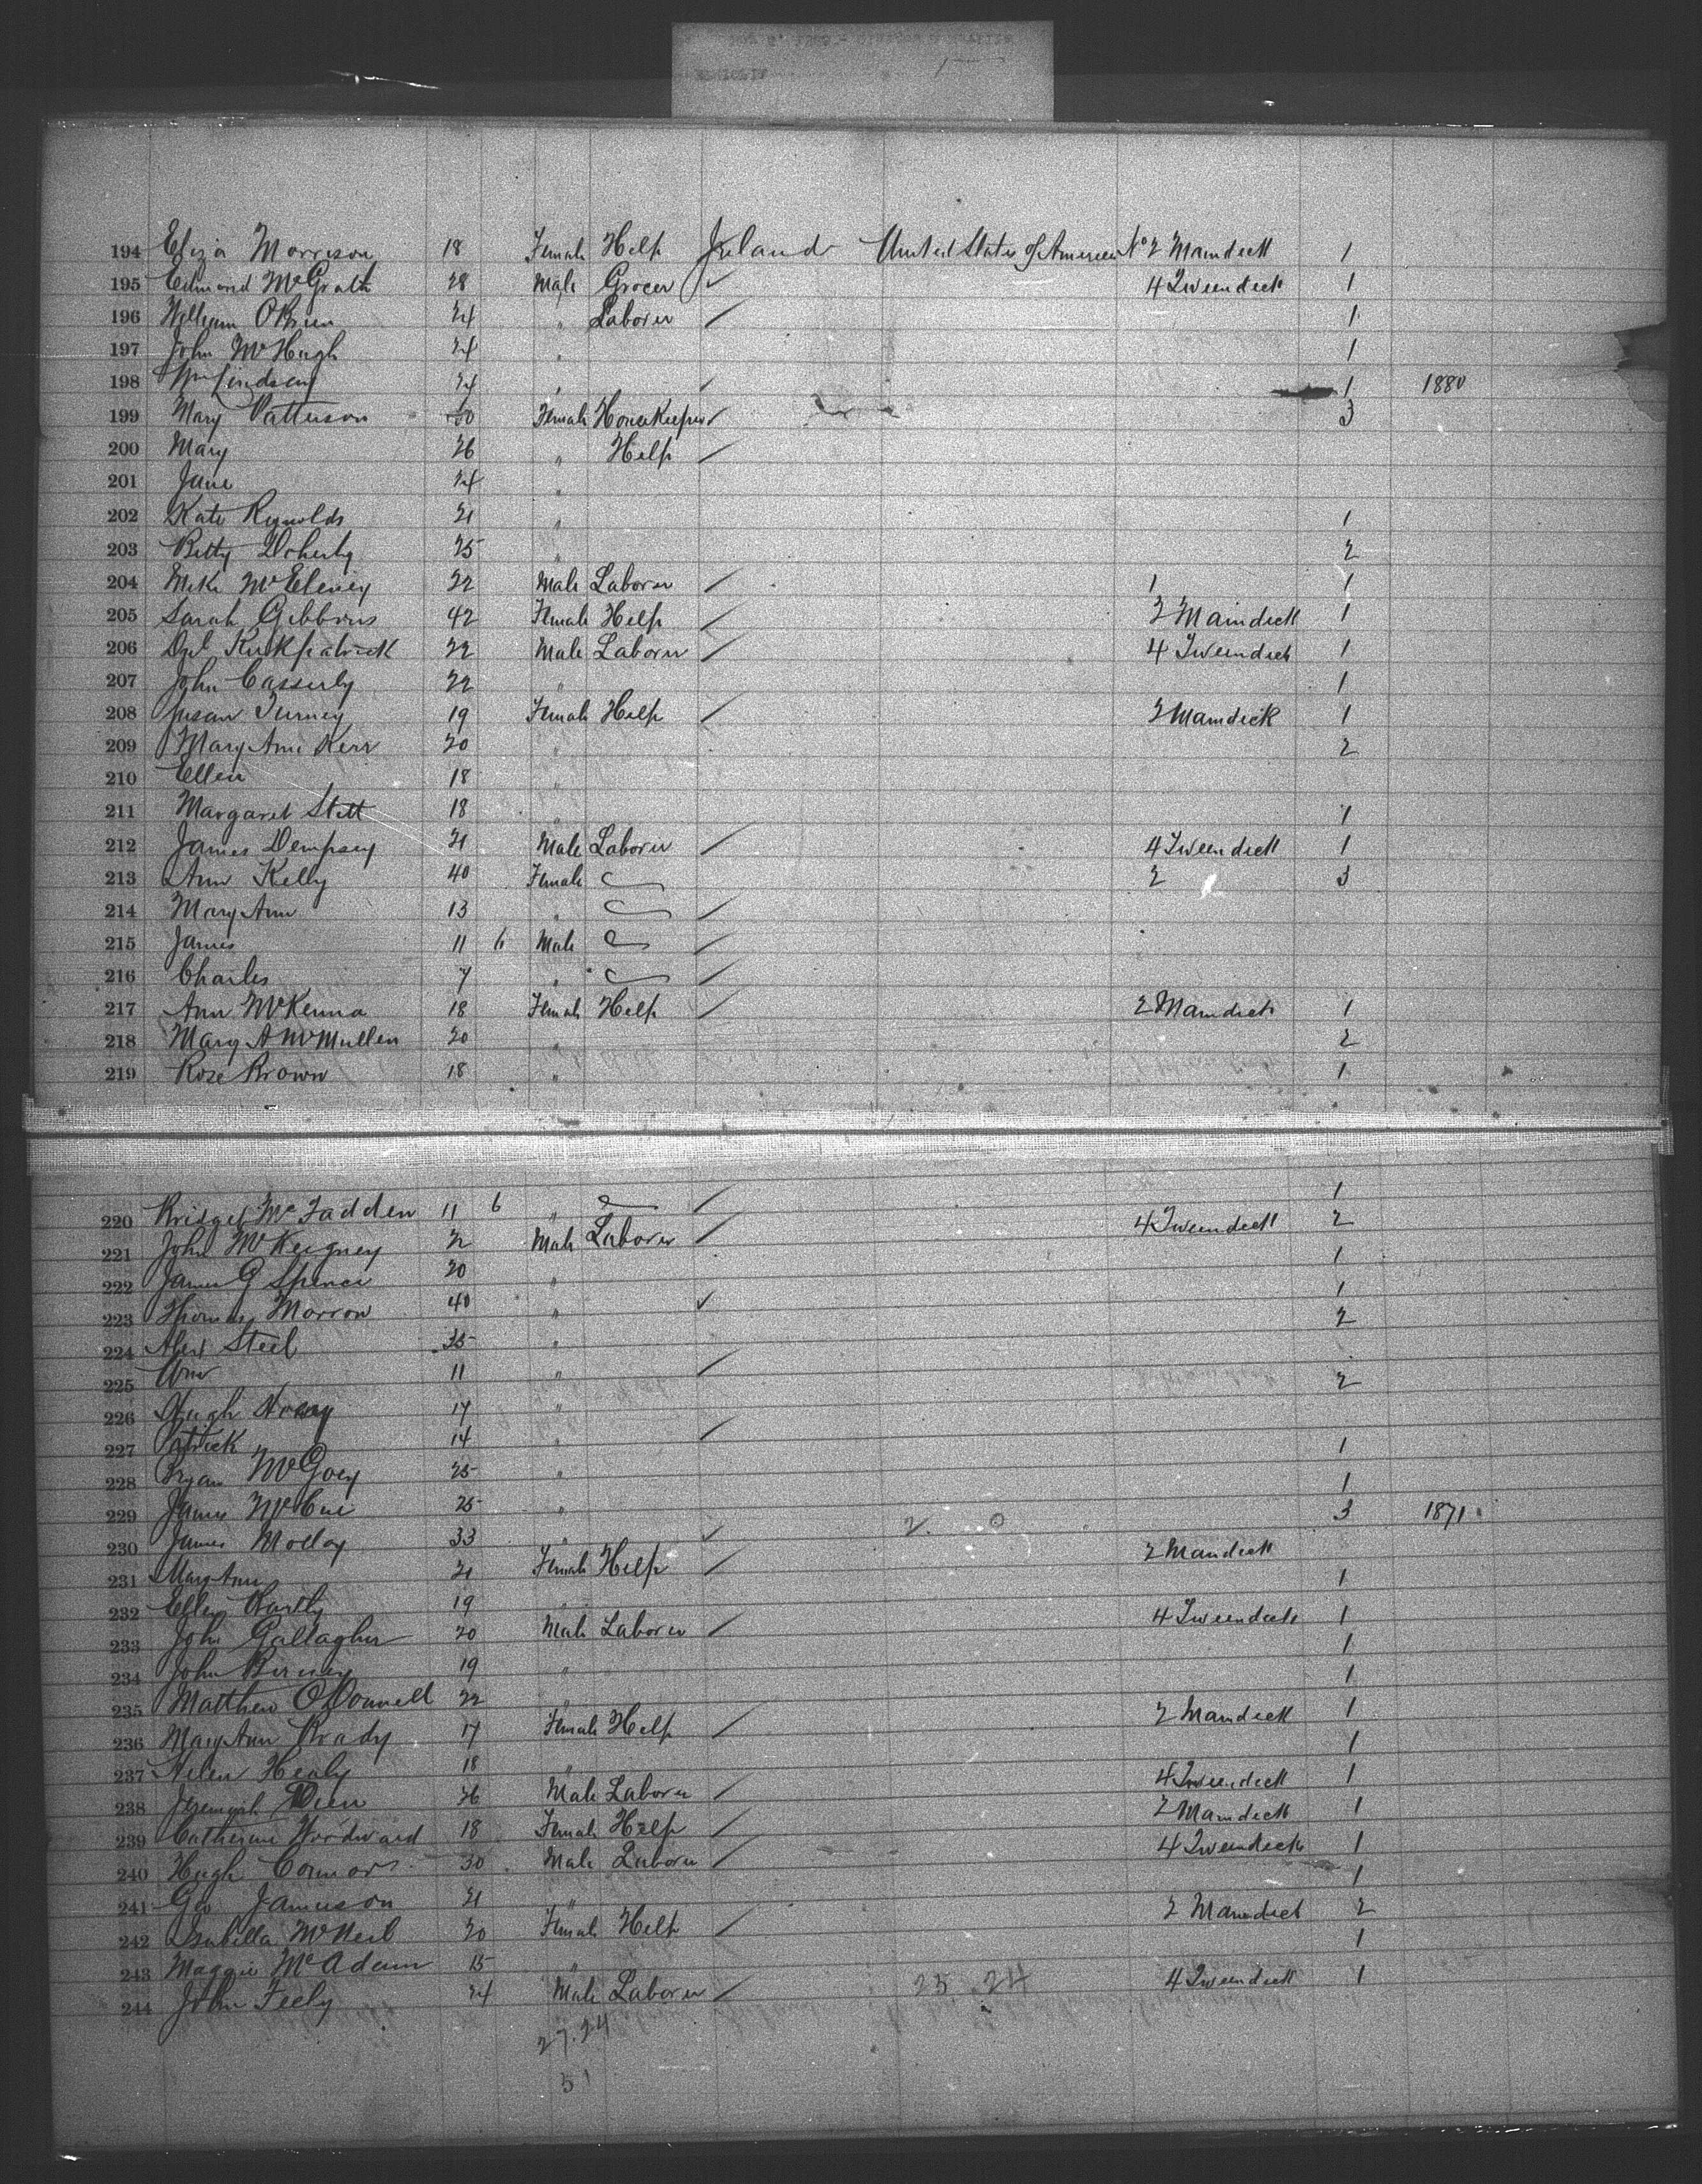 194 Eliza Morrison 18 Female Help Ireland United States of America No 2 Maindeck 1
195 Edmond McGrath 28 Male Grocer ✓ 4 Tweendeck 1
196 William OBrien 24 " Laborer / 1
197 John McHugh 24 " 1
198 Wm Lindsay 24 " / 1 1880
199 Mary Patterson 50 Female Housekeeper / 3
200 Mary 26 " Help /
201 Jane 24 "
202 Kate Reynolds 21 " 1
203 Betty Doherty 25 " 2
204 Mike McEleney 22 Male Laborer / 1 1
205 Sarah Gibbons 42 Female Help / 2 Maindeck 1
206 Kirkpatrick 22 Male Laborer / 4 Tweendeck 1
207 John Casserly 22 " 1
208 Susan Turney 19 Female Help / 2 Maindeck 1
209 Mary Ann Kerr 20 " 2
210 Ellen 18 "
211 Margaret Stett 18 " 1
212 James Dempsey 21 Male Laborer / 4 Tweendeck 1
213 Ann Kelly 40 Female 2 3
214 Mary Ann 13 " /
215 James 11 6 Male /
216 Charles 7 " /
217 Ann McKenna 18 Female Help / 2 Maindeck 1
218 Mary A McMullen 20 " 2
219 Rose Brown 18 " 1
220 Bridget McFadden 11 6 " / 1
221 John McKeigney 22 Male Laborer / 4 Tweendeck 2
222 James G Spence 20 " 1
223 Thomas Morrow 40 " ✓ 1
224 Alex Steel 35 " 2
225 Wm 11 " /
226 Hugh 17 " 2
227 Patrick 14 " /
228 Bryan McGoey 25 " 1
229 James McCue 25 " 1
230 James Molloy 33 " ✓ 3 1871
231 Mary Ann 21 Female Help / 2 Maindeck
232 Ellen 19 " 1
233 John Gallagher 20 Male Laborer / 4 Tweendeck 1
234 John Birney 19 " 1
235 Matthew O'Donnell 22 " 1
236 Mary Ann Brady 17 Female Help / 2 Maindeck 1
237 Helen Healy 18 " 1
238 Jeremiah 26 Male Laborer / 4 Tweendeck 1
239 Catherine Woodward 18 Female Help / 2 Maindeck 1
240 Hugh Connors 30 Male Laborer / 4 Tweendeck 1
241 Geo Jameson 21 " 1
242 Isabella McNeil 20 Female Help / 2 Maindeck 2
243 Maggie McAdam 15 " 1
244 John Feely 24 Male Laborer / 23 24 4 Tweendeck 1
27.24
51